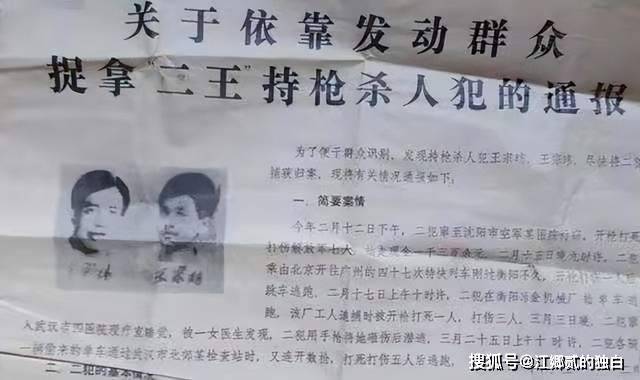 关于依靠发动群众
捉拿“二王”持枪杀人犯的通报
为了便于群众识别，发现持枪杀人犯王宗坊、王宗玮，尽快将二犯
捕获归案，现将有关情况通报如下：
一、简要案情
今年二月十二日下午，二犯窜至沈阳市空军某医院行窃，开枪打死
打伤
七人
二犯
乘由北京开往广州的四十七次特快列车刚过衡阳不久，
跳车逃跑。二月十七日上午十时许，二犯在衡阳冶金机械厂抢单车逃
跑，该厂工人追捕时被开枪打死一人，打伤三人。三月三日晚，二犯窜
入武汉市四医院理疗室睡觉，被一女医生发现，二犯用手枪将她砸伤后潜逃。三月二十五日上午十时许，二犯各骑
一辆偷来的单车通过武汉市北郊某检查站时，又连开数枪，打死打伤五人后逃跑，
二、二犯的基本情况
搜狐号@江郷贰的独白